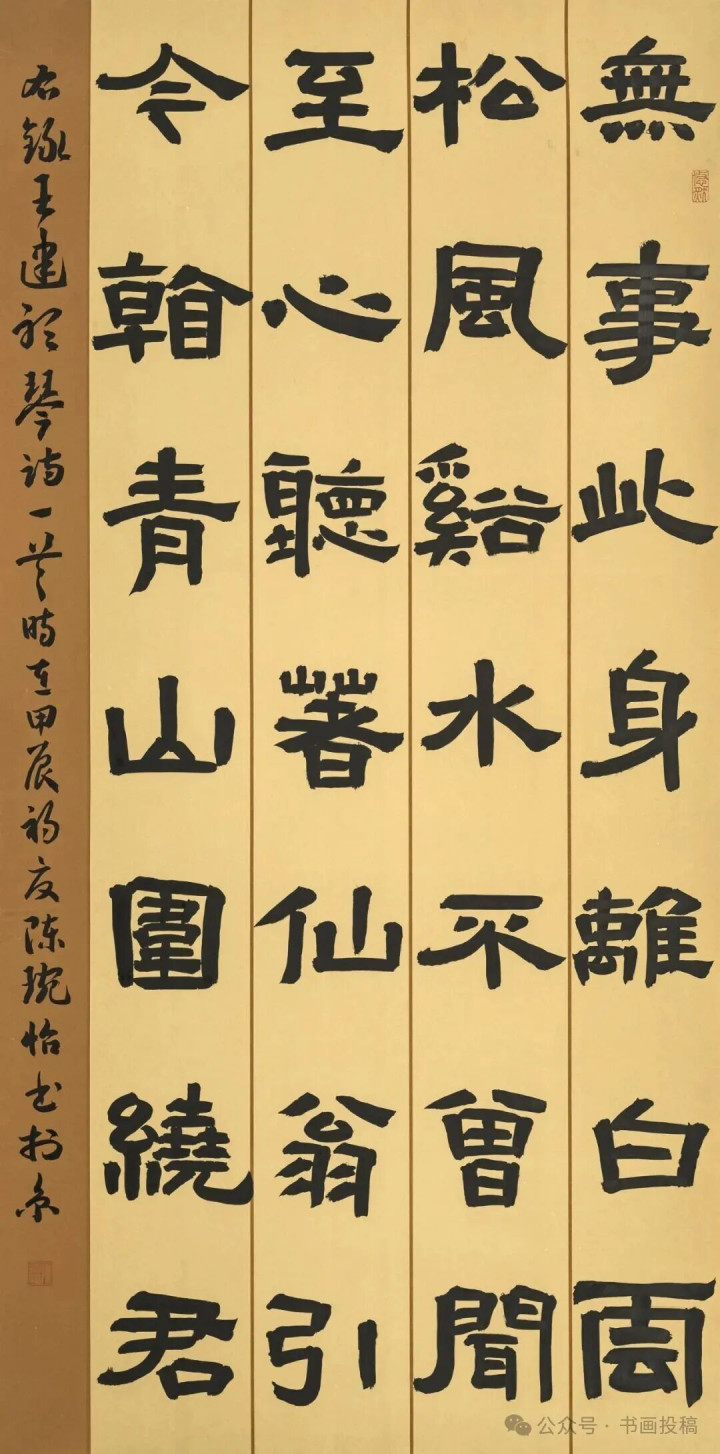 無事此身離白雲
松風谿水不曾聞
至心聽著仙翁引
今看青山圍繞君
右錄王建聽琴詩一首時在甲辰初夏陈琬怡书於京
公众号 · 书画投稿